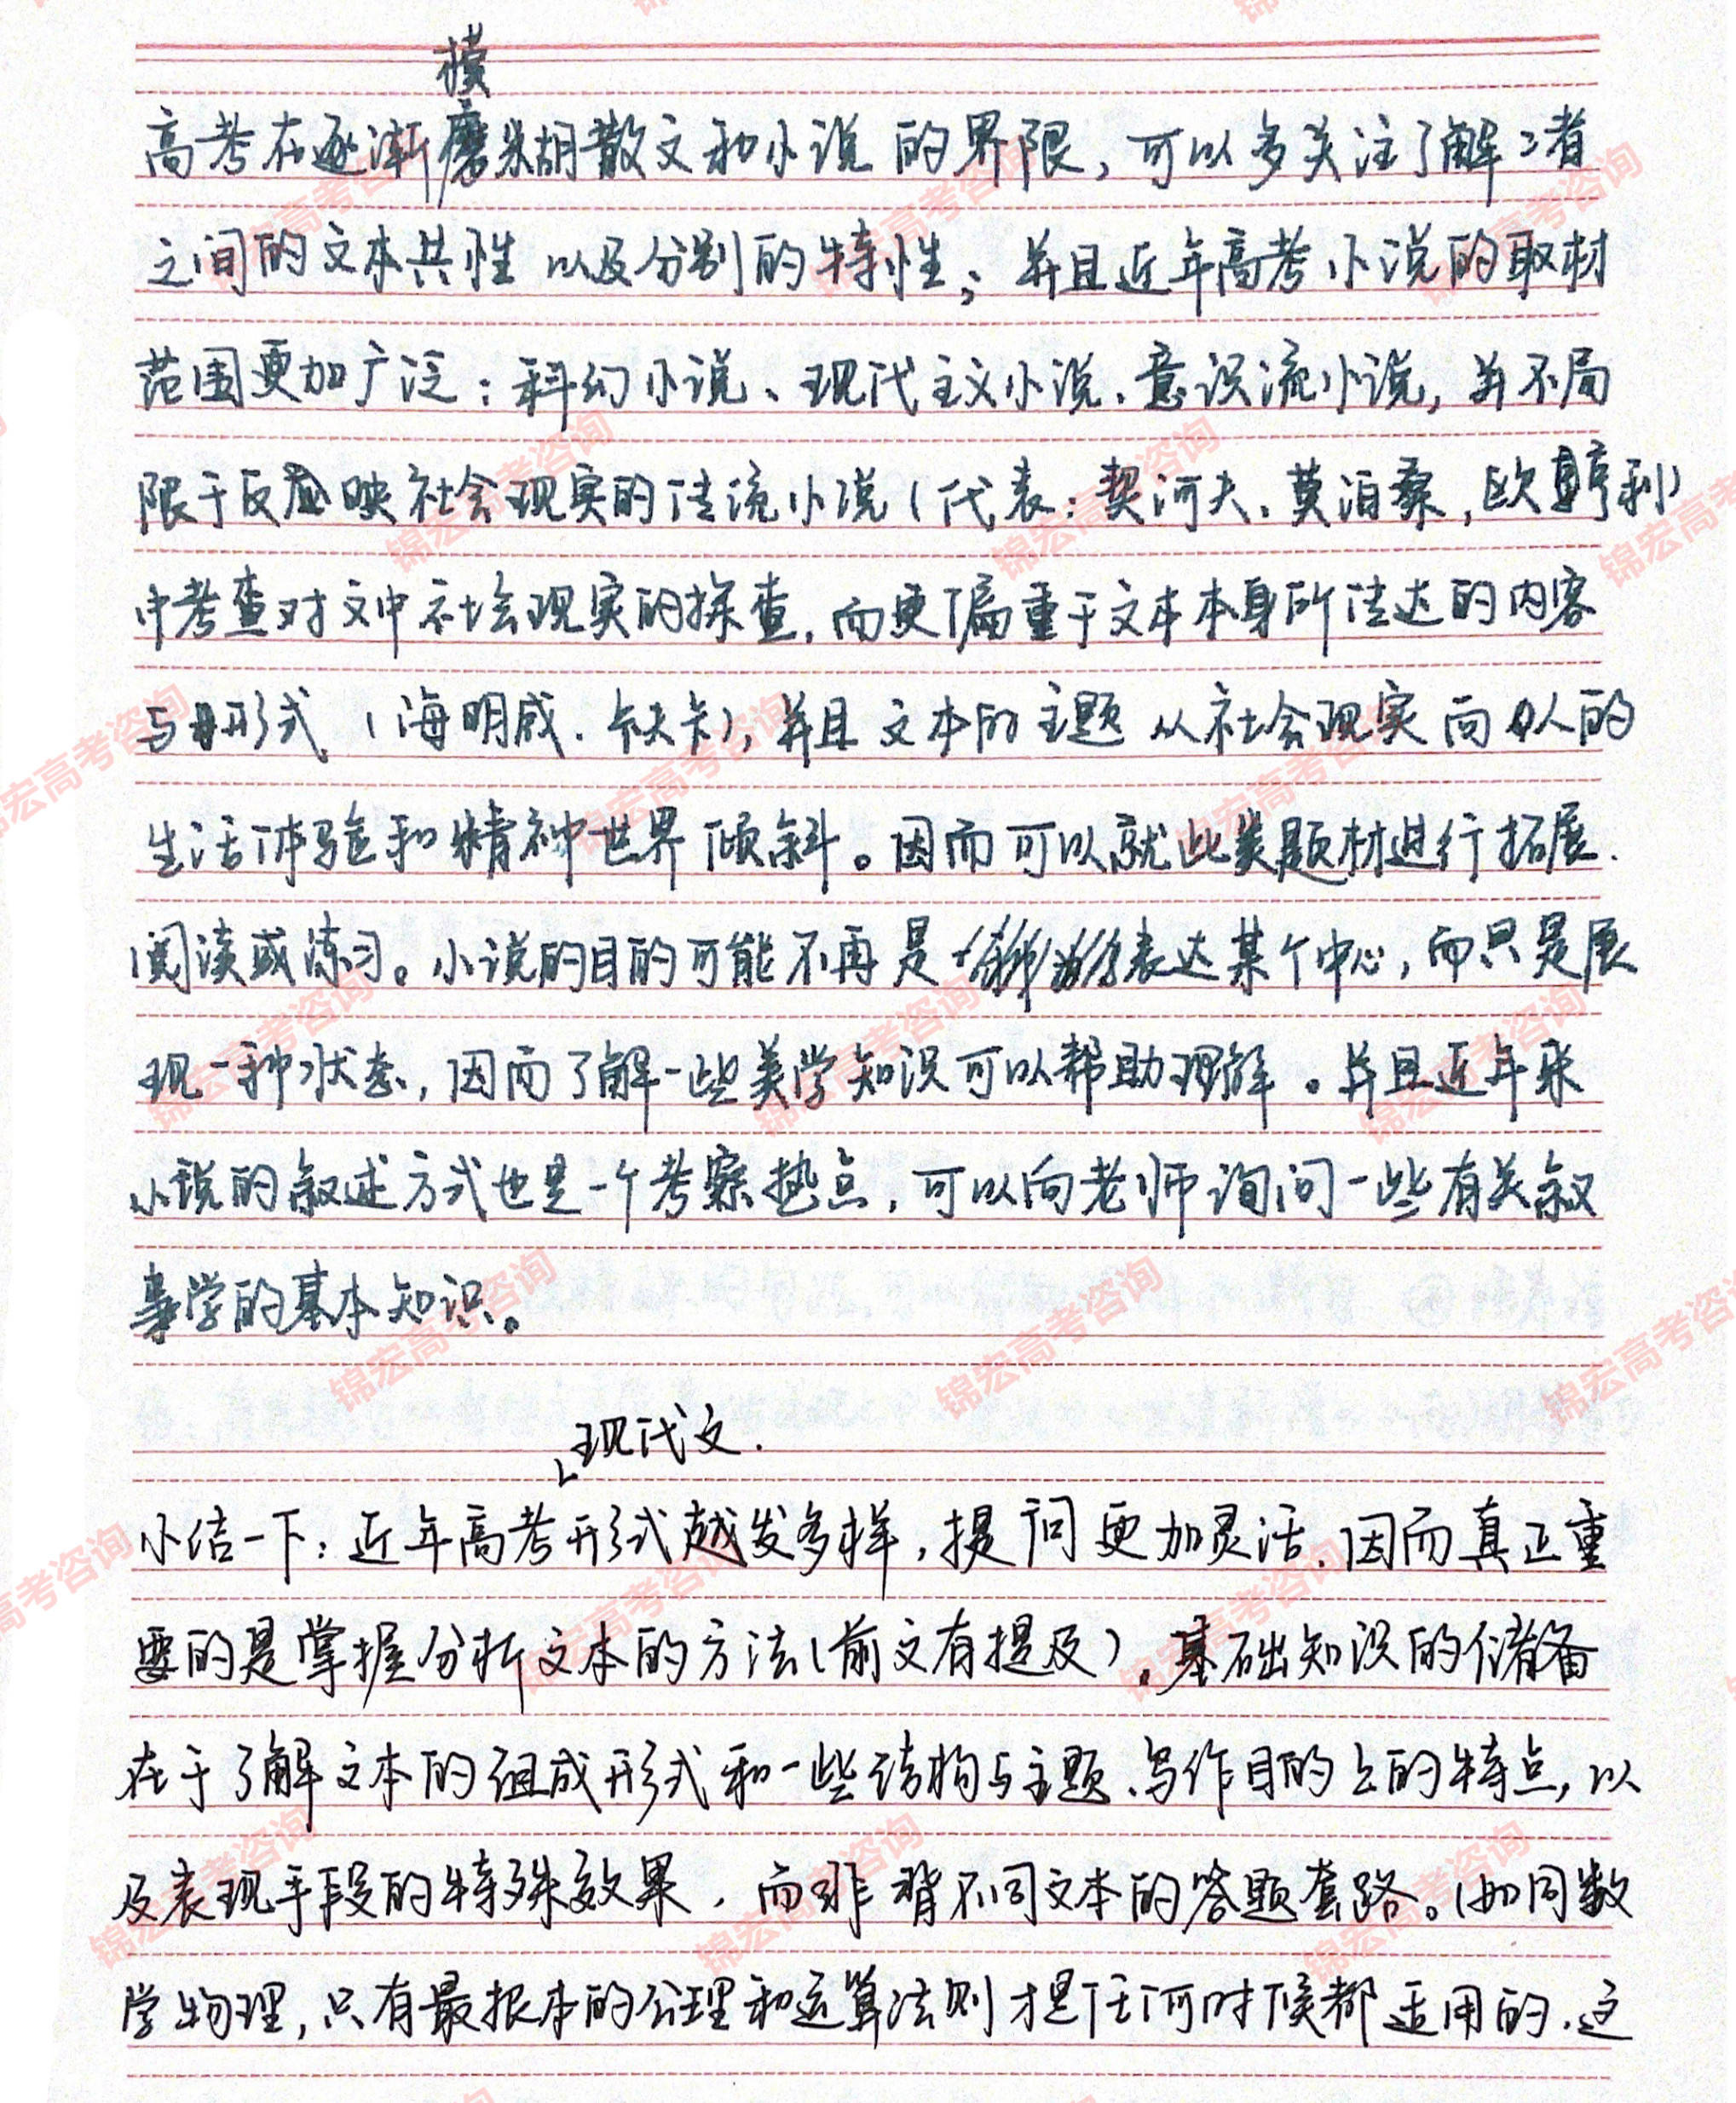 高考在逐渐模糊散文和小说的界限，可以多关注了解2者
之间的文本共性以及分别的特性；并且近年高考小说的取材
范围更加广泛：科幻小说、现代主义小说、意识流小说，并不局
限于反映社会现实的传统小说（代表：契诃夫、莫泊桑，欧亨利）
中考查对文中社会现实的探查，而更偏重于文本本身所传达的内容
与形式（海明威、卡夫卡），并且文本的主题从社会现实向人的
生活体验和精神世界倾斜。因而可以就此类题材进行拓展
阅读或练习。小说的目的可能不再是表达某个中心，而只是展
现一种状态，因而了解一些美学知识可以帮助理解。并且近年来
小说的叙述方式也是一个考察热点，可以向老师询问一些有关叙
事学的基本知识。
现代文.
小结一下：近年高考形式越发多样，提问更加灵活，因而真正重
要的是掌握分析文本的方法（前文有提及）。基础知识的储备
在于了解文本的组成形式和一些结构与主题、写作目的上的特点，以
及表现手段的特殊效果，而非背不同文本的答题套路。（如同数
学物理，只有最根本的公理和运算法则才是任何时候都适用的，这
锦宏高考咨询